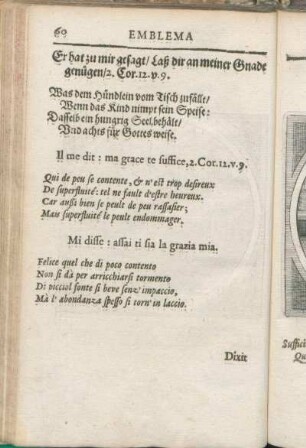 60 EMBLEMA
Er hat zu mir gesagt / Laß dir an meiner Gnade
genügen / 2. Cor. 12. v. 9.
Was dem Hündlein vom Tisch zufällt /
Wenn das Kind nimpt sein Speise:
Dasselb ein hungrig Seel behält /
Vnd achts für Gottes weise.
Il me dit : ma grace te suffice, 2. Cor. 12. v. 9.
Qui de peu se contente, & n'est trop desireux
De superfluité: tel ne fault d'estre heureux.
Car aussi bien se peult de peu rassasier;
Mais superfluité le peult endommager.
Mi disse : assai ti sia la grazia mia.
Felice quel che di poco contento
Non si dà per arricchirsi tormento
Di picciol fonte si beve senz' impaccio,
Mà l' abondanza spesso si torn' in laccio.
Dixit
Suffici
Qu